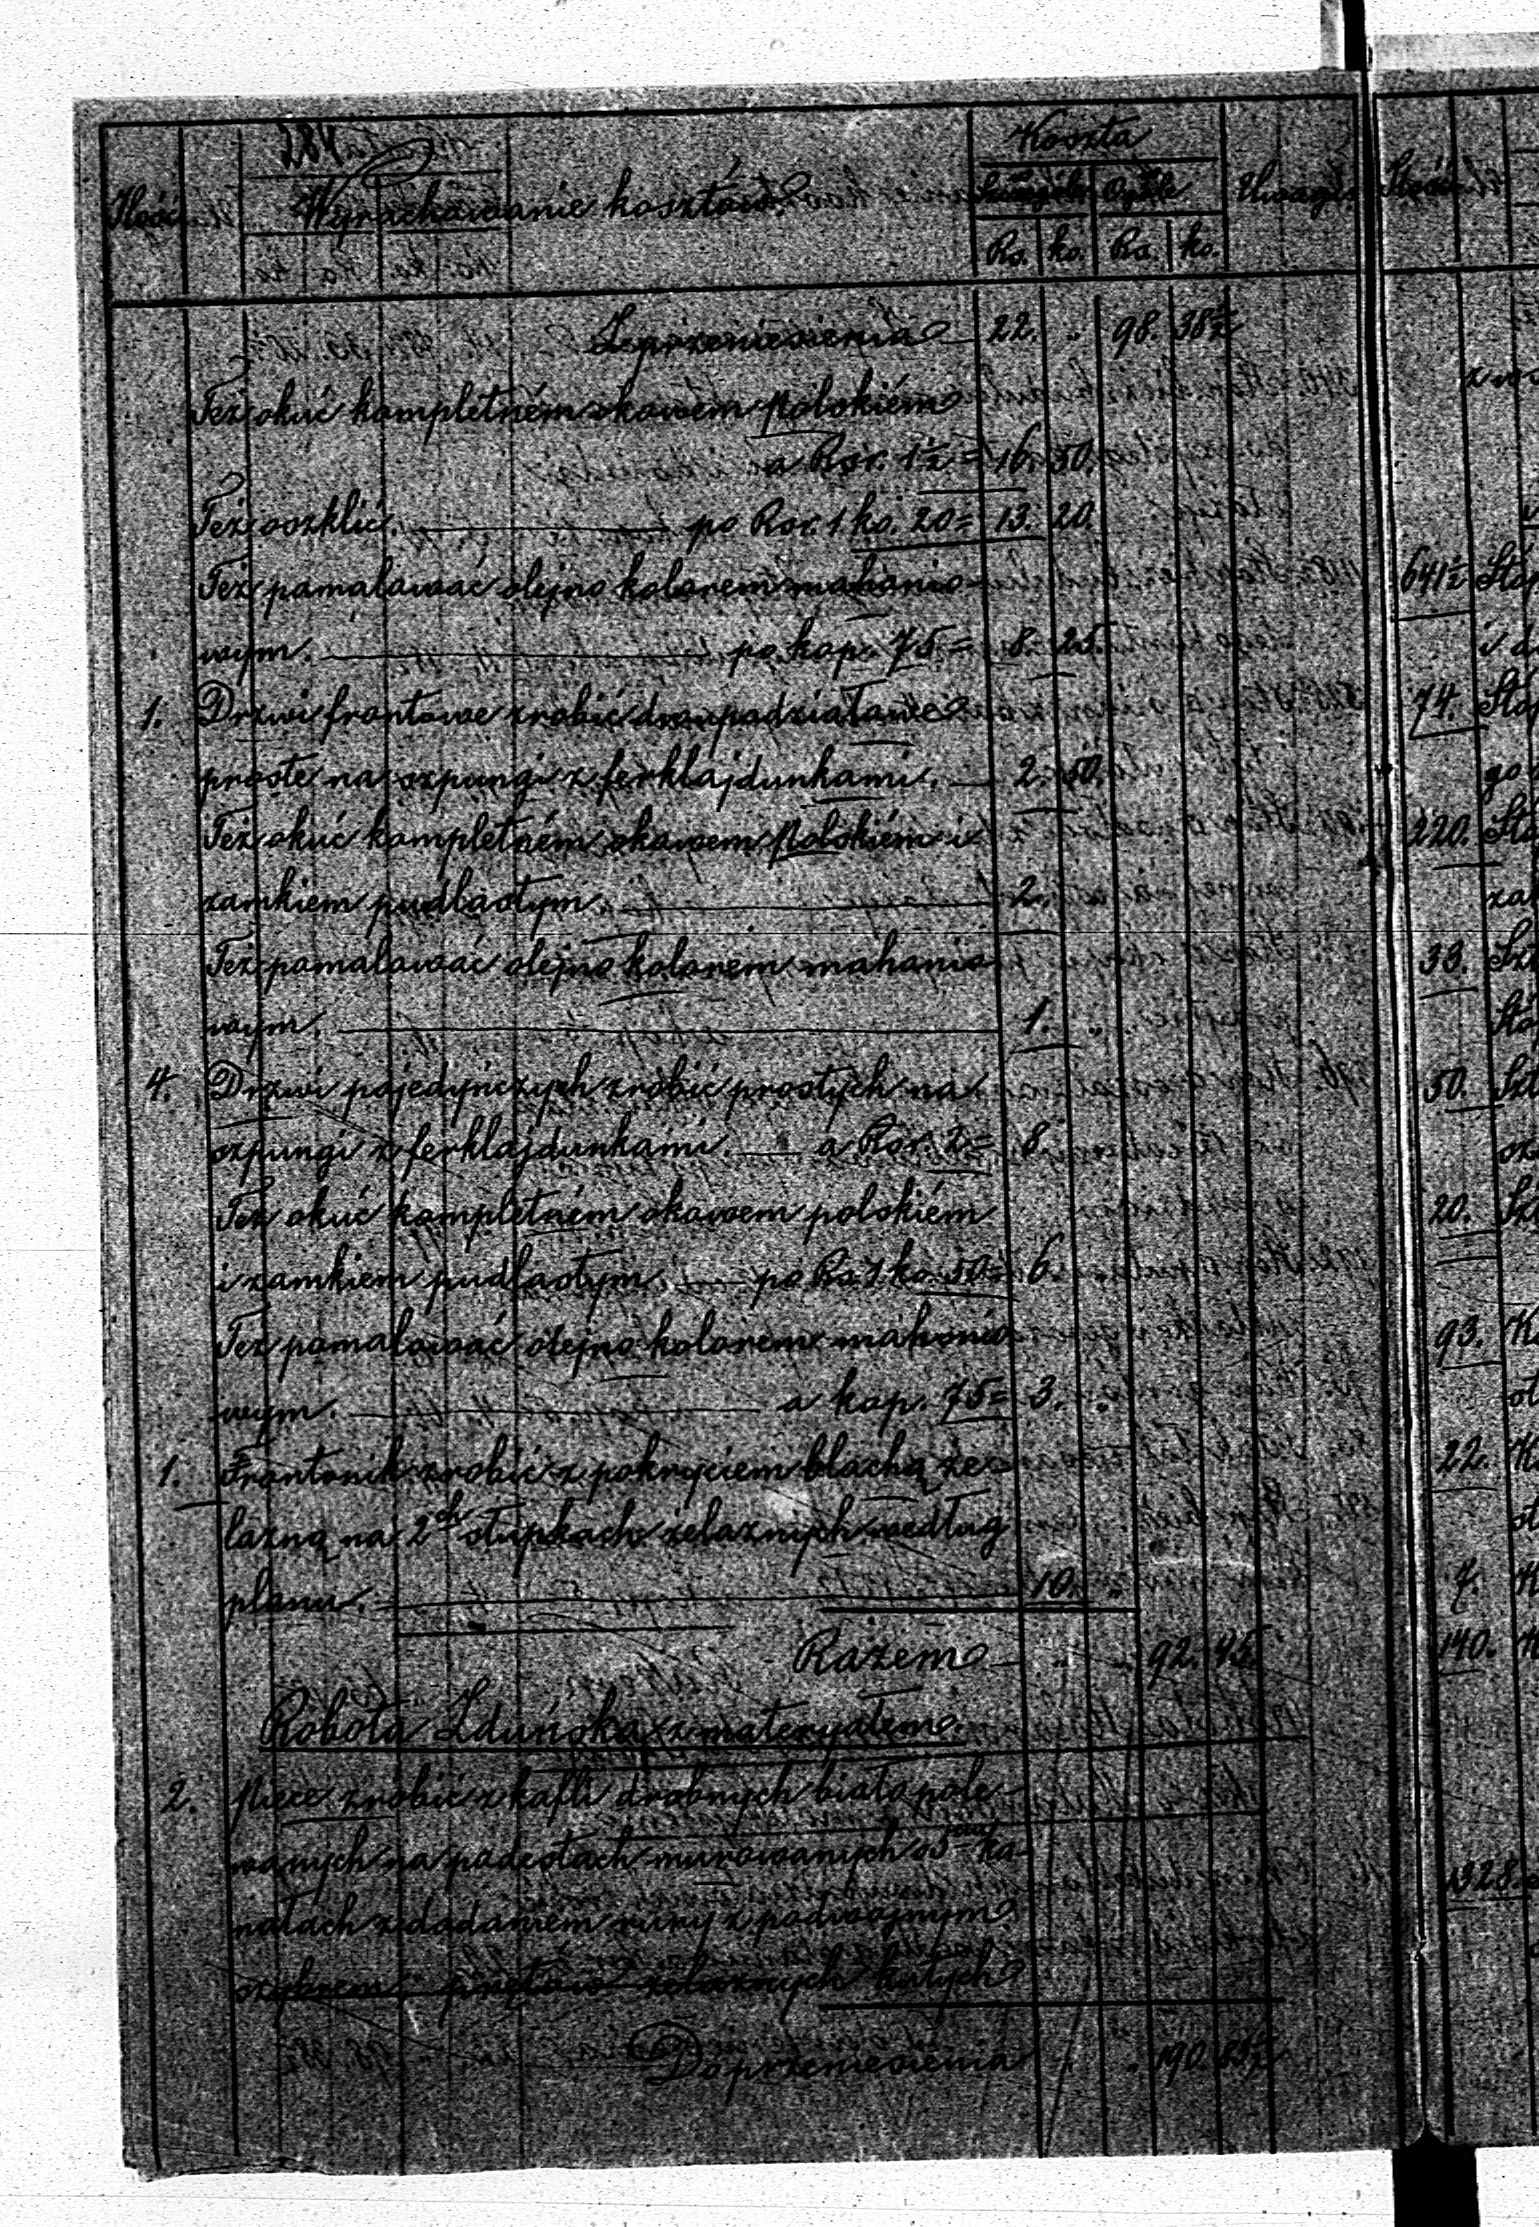 Koszta
Ilość Wyrachowanie kosztów Szczegół. Ogół. Uwaga Ilość
Rs. ko. Rs. ko.
Z przeniesienia 22. " 98. 38½
Też okuć kompletném okuwem polskiém
a Rsr. 1½ = 16. 50.
Też oszklić. po Rsr. 1 ko. 20 = 13. 20.
Też pomalować olejno kolorem mahonio-
wym. po kop. 75 = 8. 25.
1. Drzwi frontowe zrobić dwupodziałowe
proste na szpungi z ferklajdunkami. 2. 50.
Też okuć kompletném okuwem polskiém i
zamkiem pudlastym. 2. "
Też pomalować olejno kolorem mahonio
wym. 1. "
4. Drzwi pojedyńczych zrobić prostych na
szpungi z ferklajdunkami. a Rsr. 2 = 8. "
Też okuć kompletném okuwem polskiém
i zamkiem pudlastym. po Rs. 1 ko. 50 = 6. "
Też pomalować olejno kolorem mahonio
wym. a kop. 75 = 3. "
1. Frontonik zrobić z pokryciem blachą że-
lazną na 2ch słupkach żelaznych według
planu. 10. "
Razem " " 92. 45.
Robota Zduńska z materyałem.
2. Piece zrobić z kafli drobnych biało pole-
wanych na podestach murowanych o 5ciu ka-
nałach z dodaniem rury z podwójnym
prętów żelaznych kutych
Do przeniesienia " " 190. 83½
641½
74.
220.
33.
50.
20.
93.
22.
7.
140.
1328.